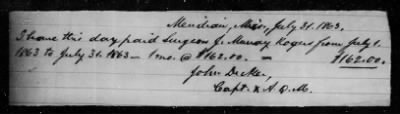 Meridian, Miss, July 31. 1863.
I have this day paid Surgeon J. Murray Rogers from July 1.
1863 to July 31. 1863 — 1 mo. @ $162.00. — $162.00.
John Decker,
Capt. & A. Q. M.